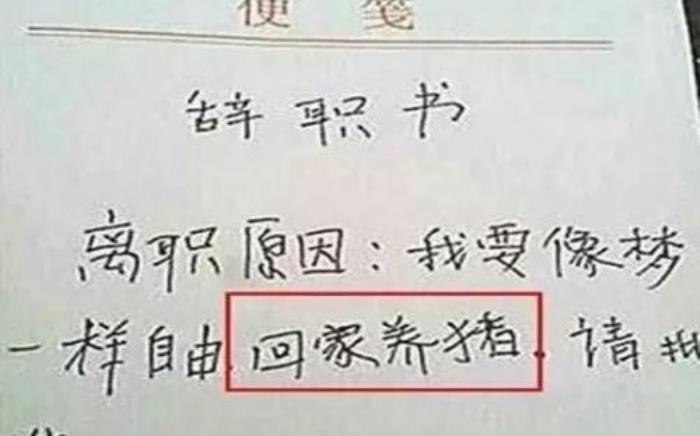 便笺
辞职书
离职原因：我要像梦
一样自由.回家养猪.请批